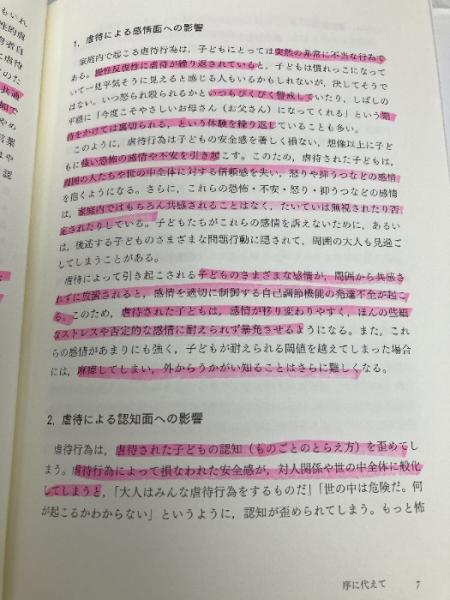 1. 虐待による感情面への影響
家庭内で起こる虐待行為は，子どもにとっては突然の非常に不当な行為で
ある。慢性反復性に虐待が繰り返されていると，子どもは慣れっこになって
いて一見平気そうに見えると感じる人もいるかもしれないが，決してそうで
はない。いつ怒られ殴られるかといつもびくびく警戒していたり，しばしの
平穏に「今度こそやさしいお母さん（お父さん）になってくれる」という期
待をかけては裏切られる，という体験を繰り返していることも多い。
このように，虐待行為は子どもの安全感を著しく損ない，想像以上に子ど
もに強い恐怖の感情や不安を引き起こす。このため，虐待された子どもは，
周囲の人たちや世の中全体に対する信頼感を失い，怒りや抑うつなどの感情
を抱くようになる。さらに，これらの恐怖・不安・怒り・抑うつなどの感情
は，家庭内ではもちろん共感されることはなく，たいていは無視されたり否
定されたりしている。子どもたちがこれらの感情を訴えないために，あるい
は，後述する子どものさまざまな問題行動に隠されて，周囲の大人も見過ご
してしまうことがある。
虐待によって引き起こされる子どものさまざまな感情が，周囲から共感さ
れずに放置されると，感情を適切に制御する自己調節機能の発達不全が起こ
る。このため，虐待された子どもは，感情が移り変わりやすく，ほんの些細
なストレスや否定的な感情に耐えられず暴発させるようになる。また，これ
らの感情があまりにも強く，子どもが耐えられる閾値を越えてしまった場合
には，麻痺してしまい，外からうかがい知ることはさらに難しくなる。
2. 虐待による認知面への影響
虐待行為は，虐待された子どもの認知（ものごとのとらえ方）を歪めてし
まう。虐待行為によって損なわれた安全感が，対人関係や世の中全体に般化
してしまうと，「大人はみんな虐待行為をするものだ」「世の中は危険だ。何
が起こるかわからない」というように，認知が歪められてしまう。もっと怖
序に代えて 7